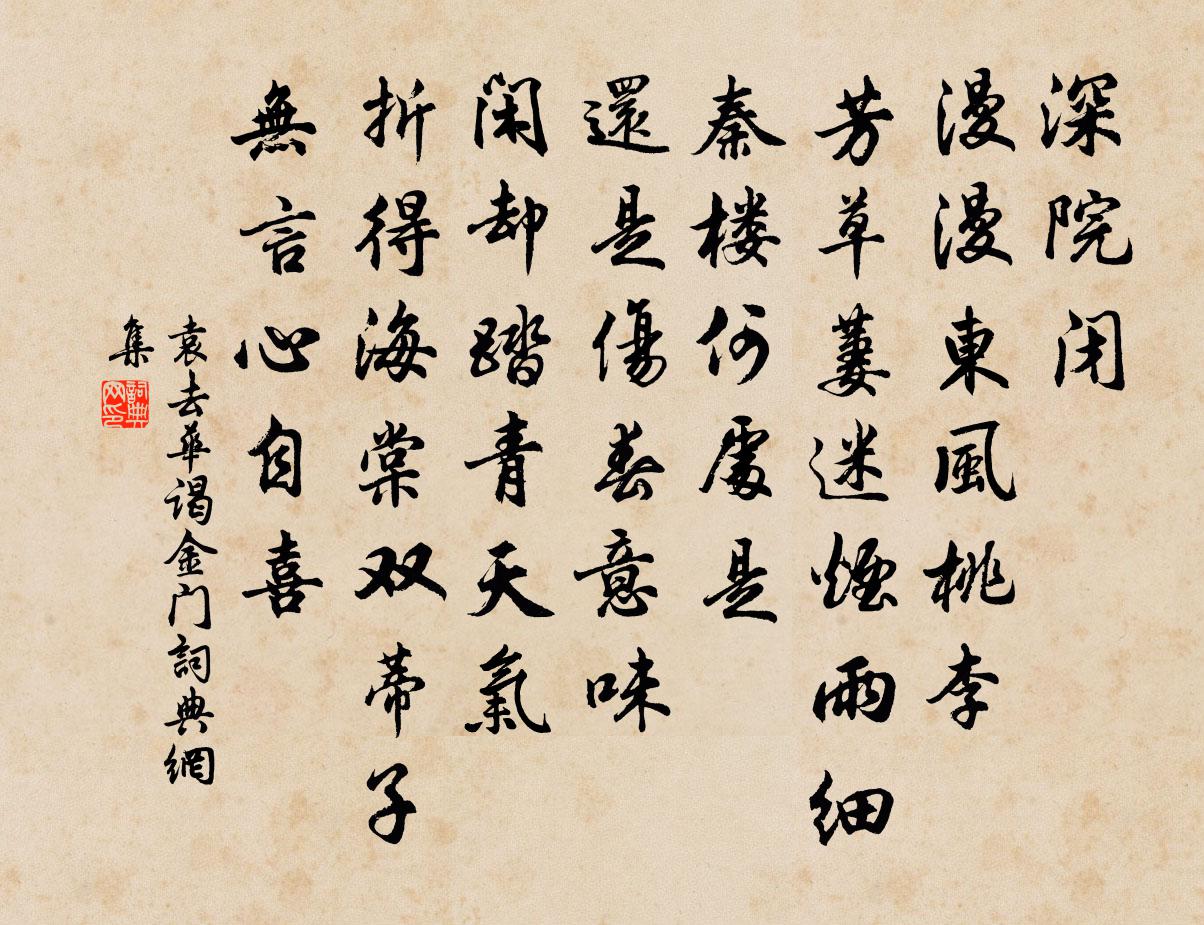 深院闭
漫漫東風桃李
芳草萋迷煙雨細
秦楼何處是
還是傷春意味
閑却踏青天氣
折得海棠双蒂子
無言心自喜
袁去華谒金门詞典網
集
詞典
网印